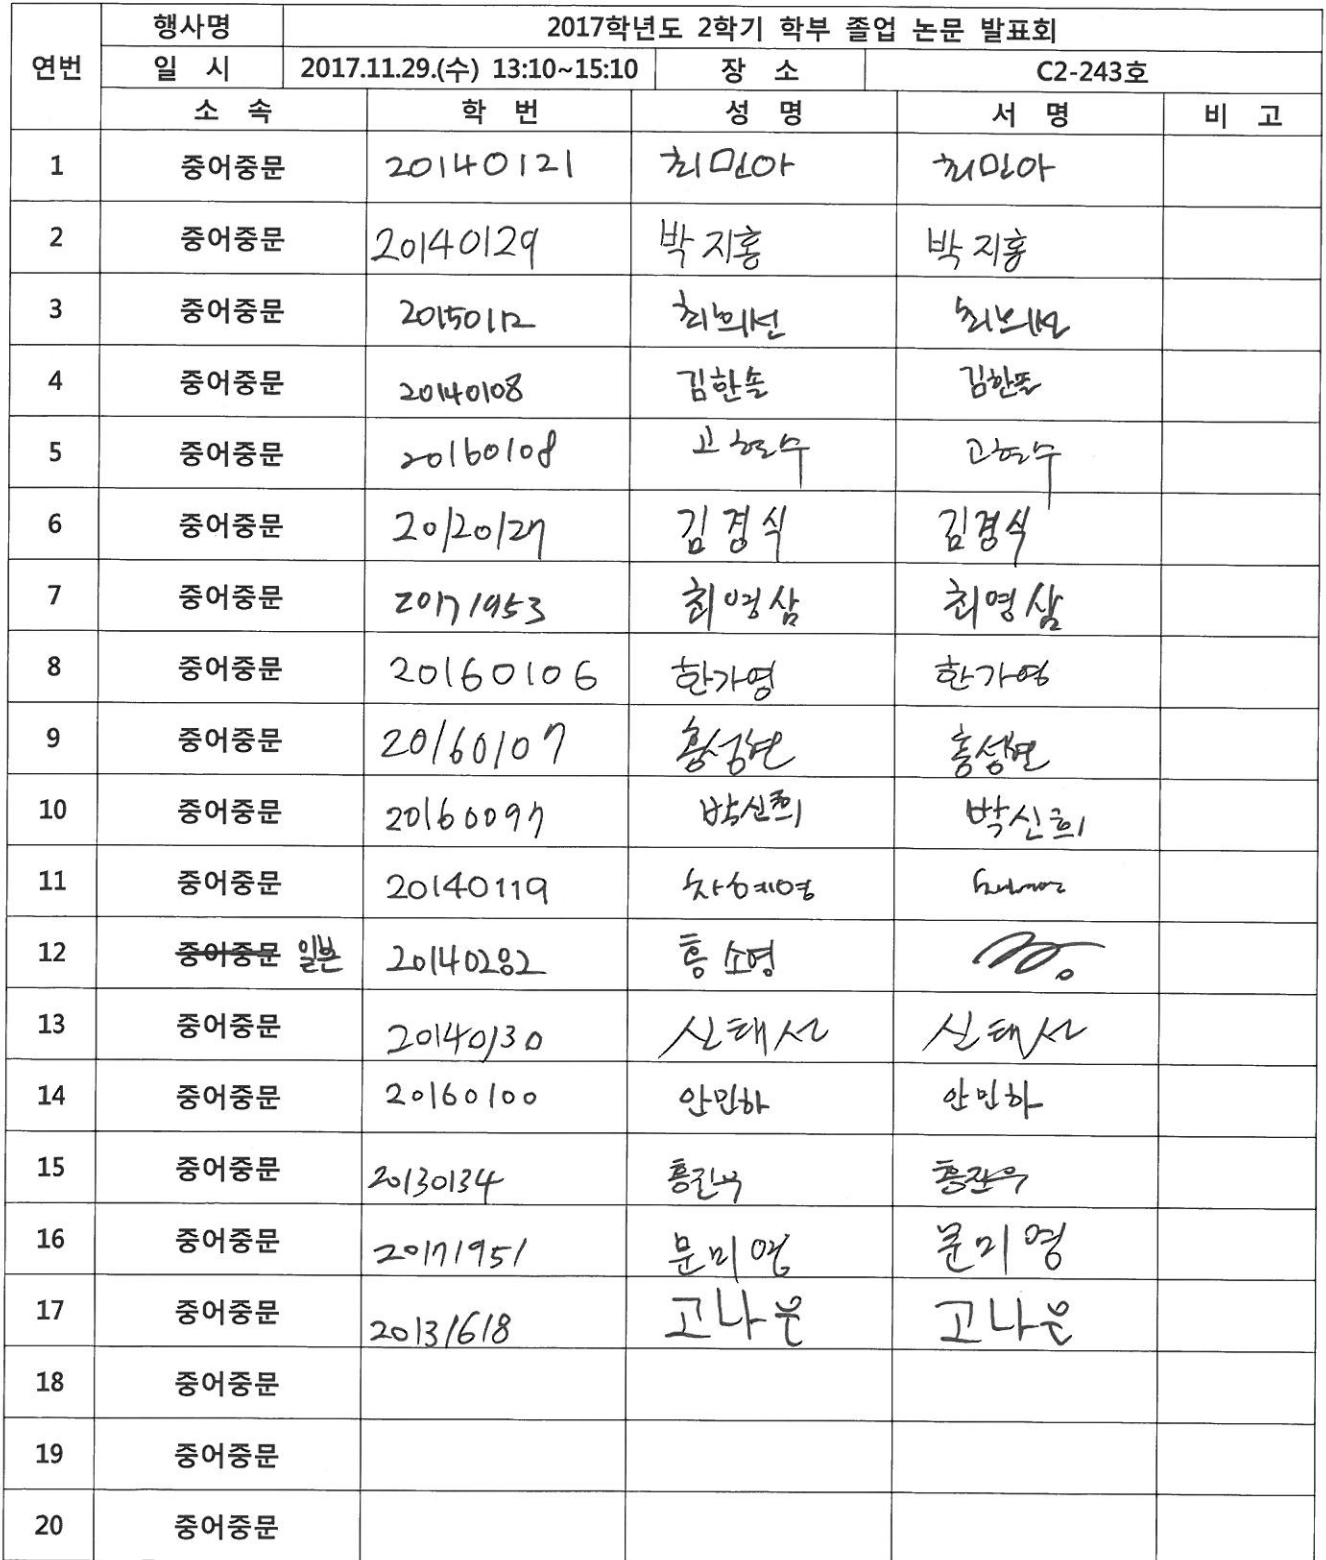 행사명 2017학년도 2학기 학부 졸업 논문 발표회
연번 일 시 2017.11.29.(수) 13:10~15:10 장 소 C2-243호
소 속 학 번 성 명 서 명 비 고
1 중어중문 20140121 최민아 최민아
2 중어중문 20140129 박지홍 박지홍
3 중어중문 20150112 최희선
4 중어중문 20140108 김한솔 김한솔
5 중어중문 20160108 고현수 고현수
6 중어중문 20120127 김경식 김경식
7 중어중문 20171953 최영삼 최영삼
8 중어중문 20160106 한가영 한가영
9 중어중문 20160107 홍성연 홍성연
10 중어중문 20160097 박신희 박신희
11 중어중문 20140119 차혜영
12 중어중문 일본 20140282 홍소영
13 중어중문 20140130 신태선 신태선
14 중어중문 20160100 안민하 안민하
15 중어중문 20130134
16 중어중문 20171951 문미영 문미영
17 중어중문 20131618 고나은 고나은
18 중어중문
19 중어중문
20 중어중문